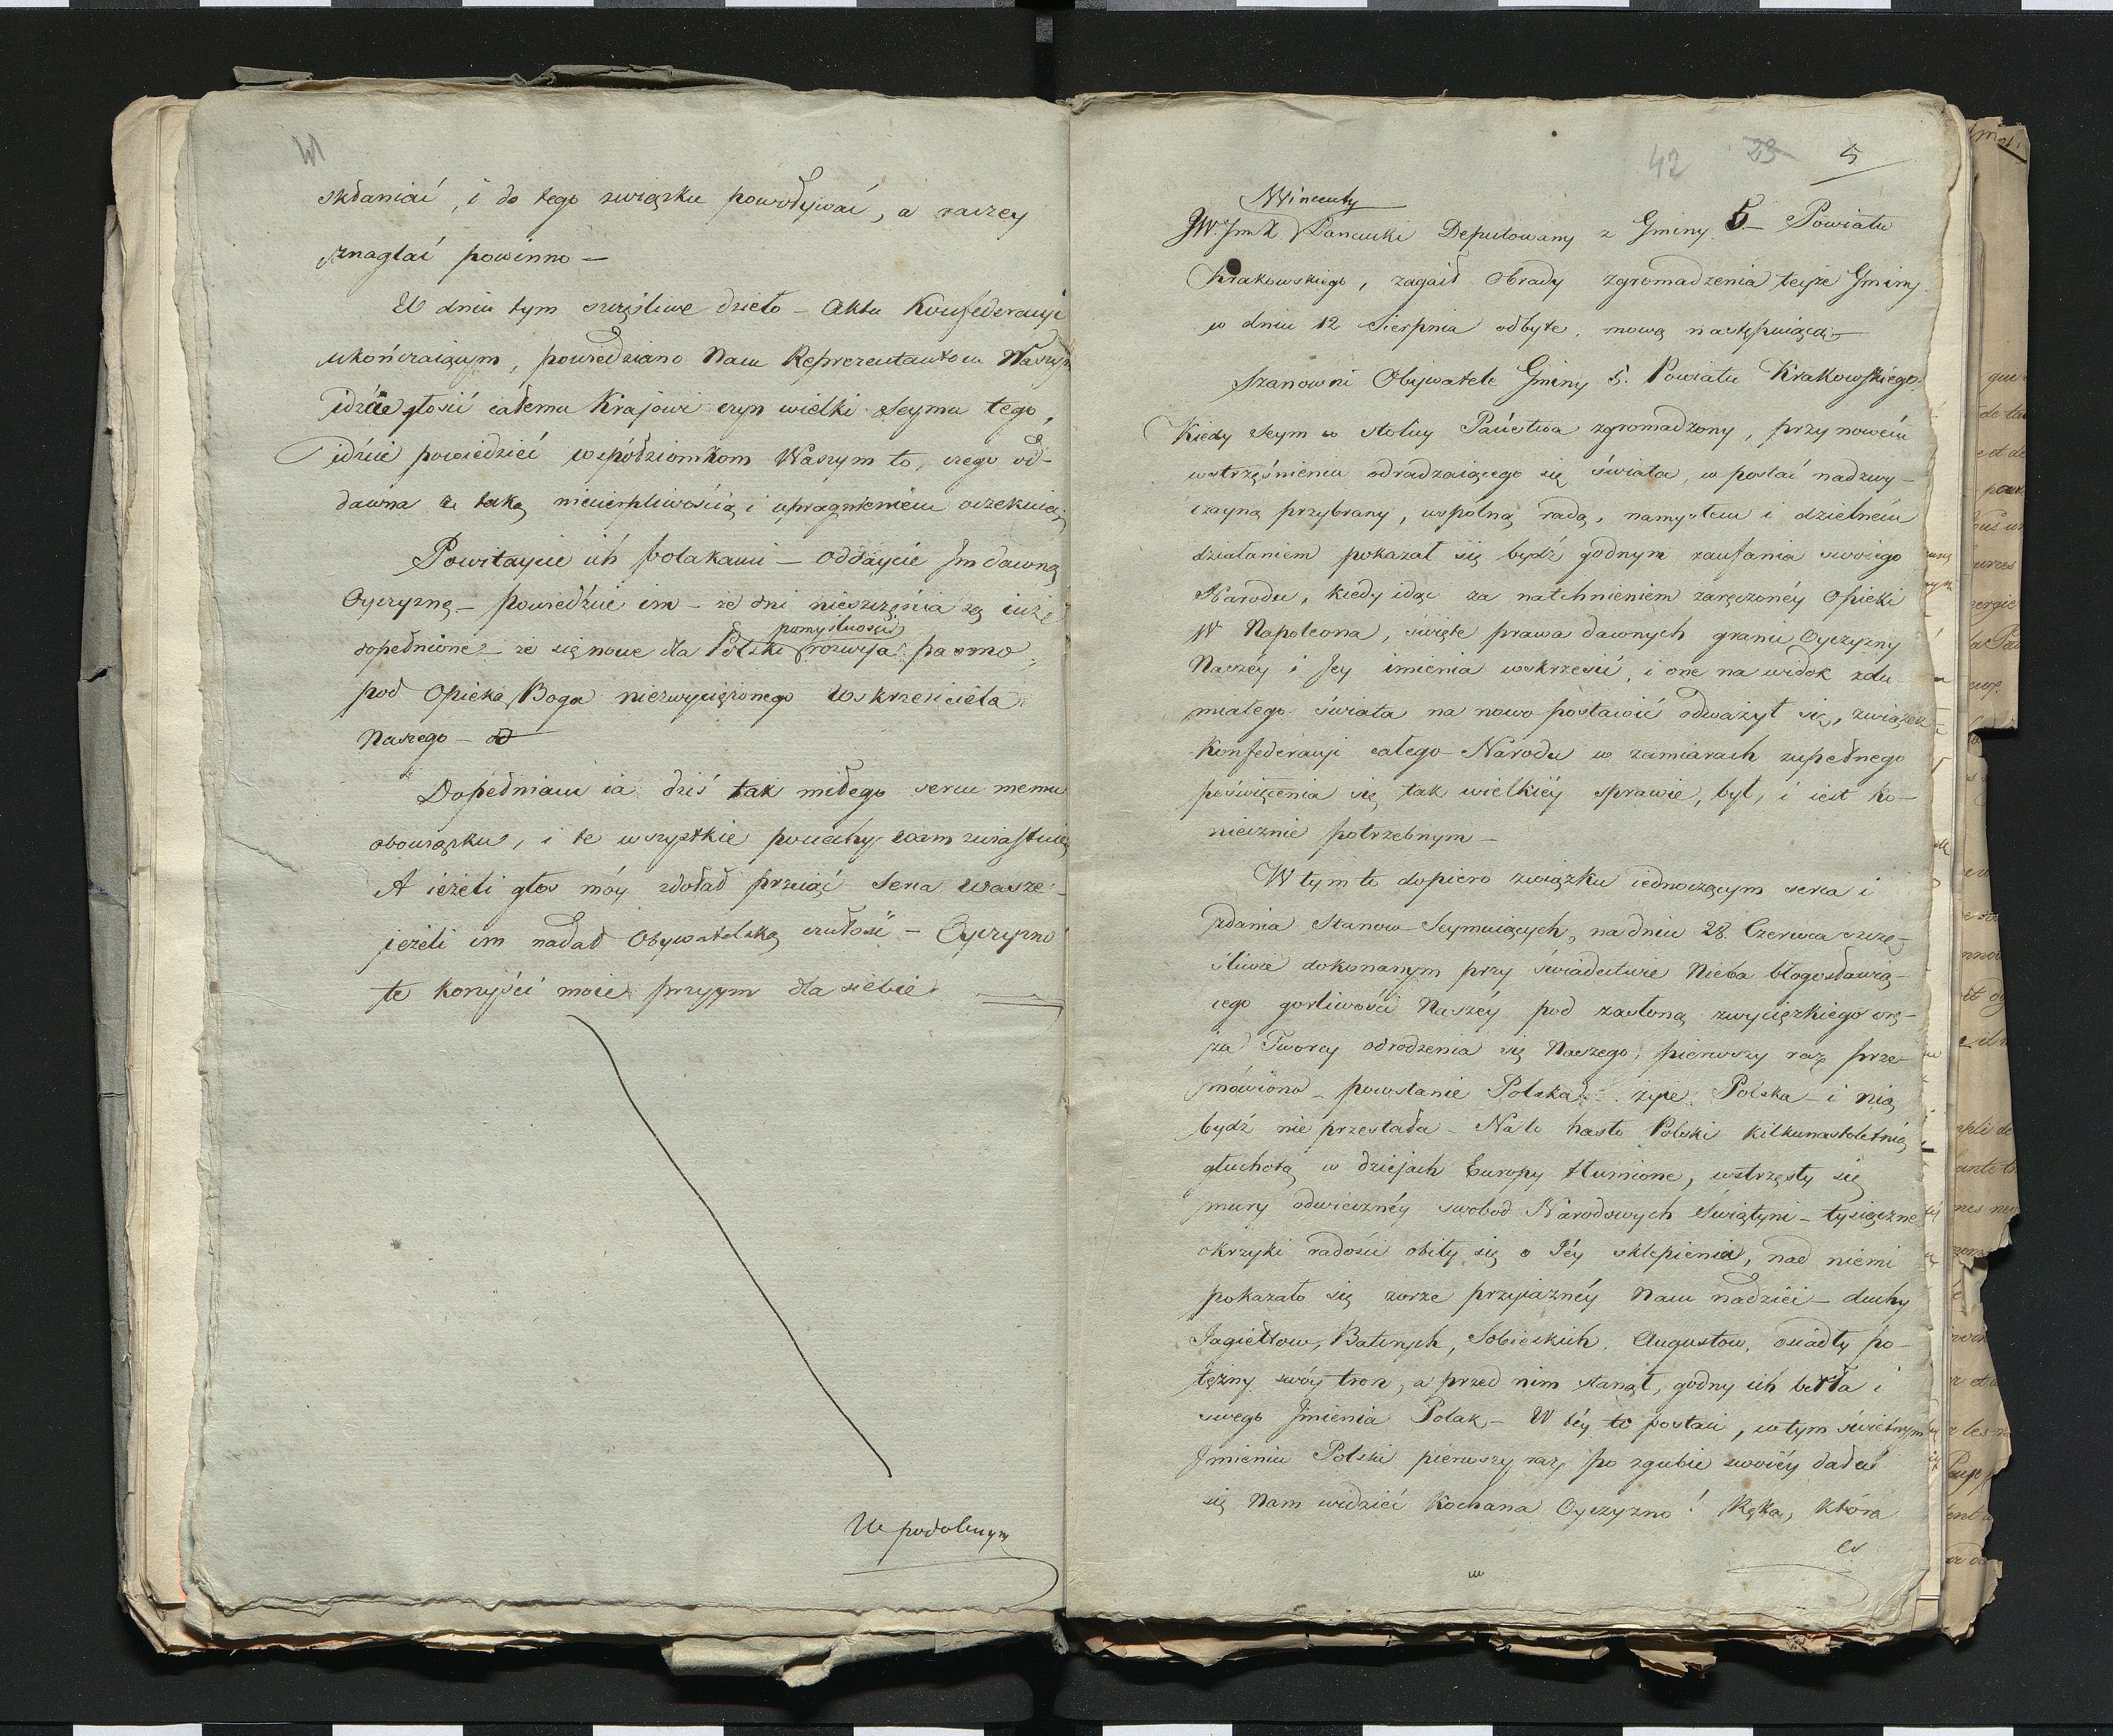 41
skłaniać, i do tego związku powoływać, a raczey
znaglać powinno —
W dniu tym szczęśliwe dzieło — Aktu Konfederacyi
ukończaiącym, powiedziano Nam Reprezentantom Waszym
idźcie głosić całemu Krajowi czyn wielki Seymu tego,
idźcie powiedzieć współziomkom Waszym to, czego od-
dawna z taką niecierpliwością i upragnieniem oczekuią
Powitaycie ich Polakami — oddaycie Im dawną
Oyczyznę — powiedźcie im — że dni nieszczęścia są iuż
pomyślności
dopełnione — że się nowe dla Polski rozwija pasmo
pod Opieką Boga niezwyciężonego Wskrzesiciela
Naszego —
Dopełniam ia dziś tak miłego sercu memu
obowiązku, i te wszystkie pociechy wam zwiastuię
A ieżeli głos móy zdołał przeiąć serca wasze —
ieżeli im nadał Obywatelską czułość — Oyczyzno
te korzyści moie przyym dla siebie
W podobnym
42 23 5
Wincenty
JW. Jmć X Łancucki Deputowany z Gminy 5 — Powiatu
Krakowskiego, zagaił obrady zgromadzenia teyże Gminy
w dniu 12 Sierpnia odbyte, mową następuiącą —
Szanowni Obywatele Gminy 5. Powiatu Krakowskiego.
Kiedy Seym w stolicy Państwa zgromadzony, przy nowém
wstrząśnieniu odradzaiącego się świata, w postać nadzwy-
czayną przybrany, wspólną radą, namysłem i dzielném
działaniem pokazał się bydź godnym zaufania swoiego
Narodu, kiedy idąc za natchnieniem zaręczonéy Opieki
W Napoleona, święte prawa dawnych granic Oyczyzny
Naszéy i Jey imienia wskrzesić, i one na widok zdu-
miałego świata na nowo postawić odważył się, związek
Konfederacyi całego Narodu w zamiarach zupełnego
poświęcenia się tak wielkiéy sprawie, był, i iest ko-
niecznie potrzebnym —
W tym to dopiero związku iednoczącym serca i
zdania Stanow Seymuiących, na dniu 28. Czerwca szczę-
śliwie dokonanym przy świadectwie Nieba błogosławią-
cego gorliwości Naszéy pod zasłoną zwycięzkiego orę-
ża Tworcy odrodzenia się Naszego, pierwszy raz prze-
mówiono — powstanie Polska — żyie Polska — i nią
bydź nie przestała — Na to hasło Polski kilkunastoletnią
głuchotą w dziejach Europy tłumione, wstrzęsły się
mury odwiecznéy swobod Narodowych Świątyni — tysiączne
okrzyki radości obiły się o Jéy sklepienia, nad niemi
pokazało się zorze przyiaznéy Nam nadziei — duchy
Jagiełłow, Batorych, Sobieskich, Augustow, osiadły po-
tężny swóy tron, a przed nim stanął, godny ich berła i
swego Imienia Polak — W téy to postaci, w tym świetnym
Imieniu Polski pierwszy raz po zgubie swoiéy dałaś
się Nam widzieć Kochana Oyczyzno! Ręka, która